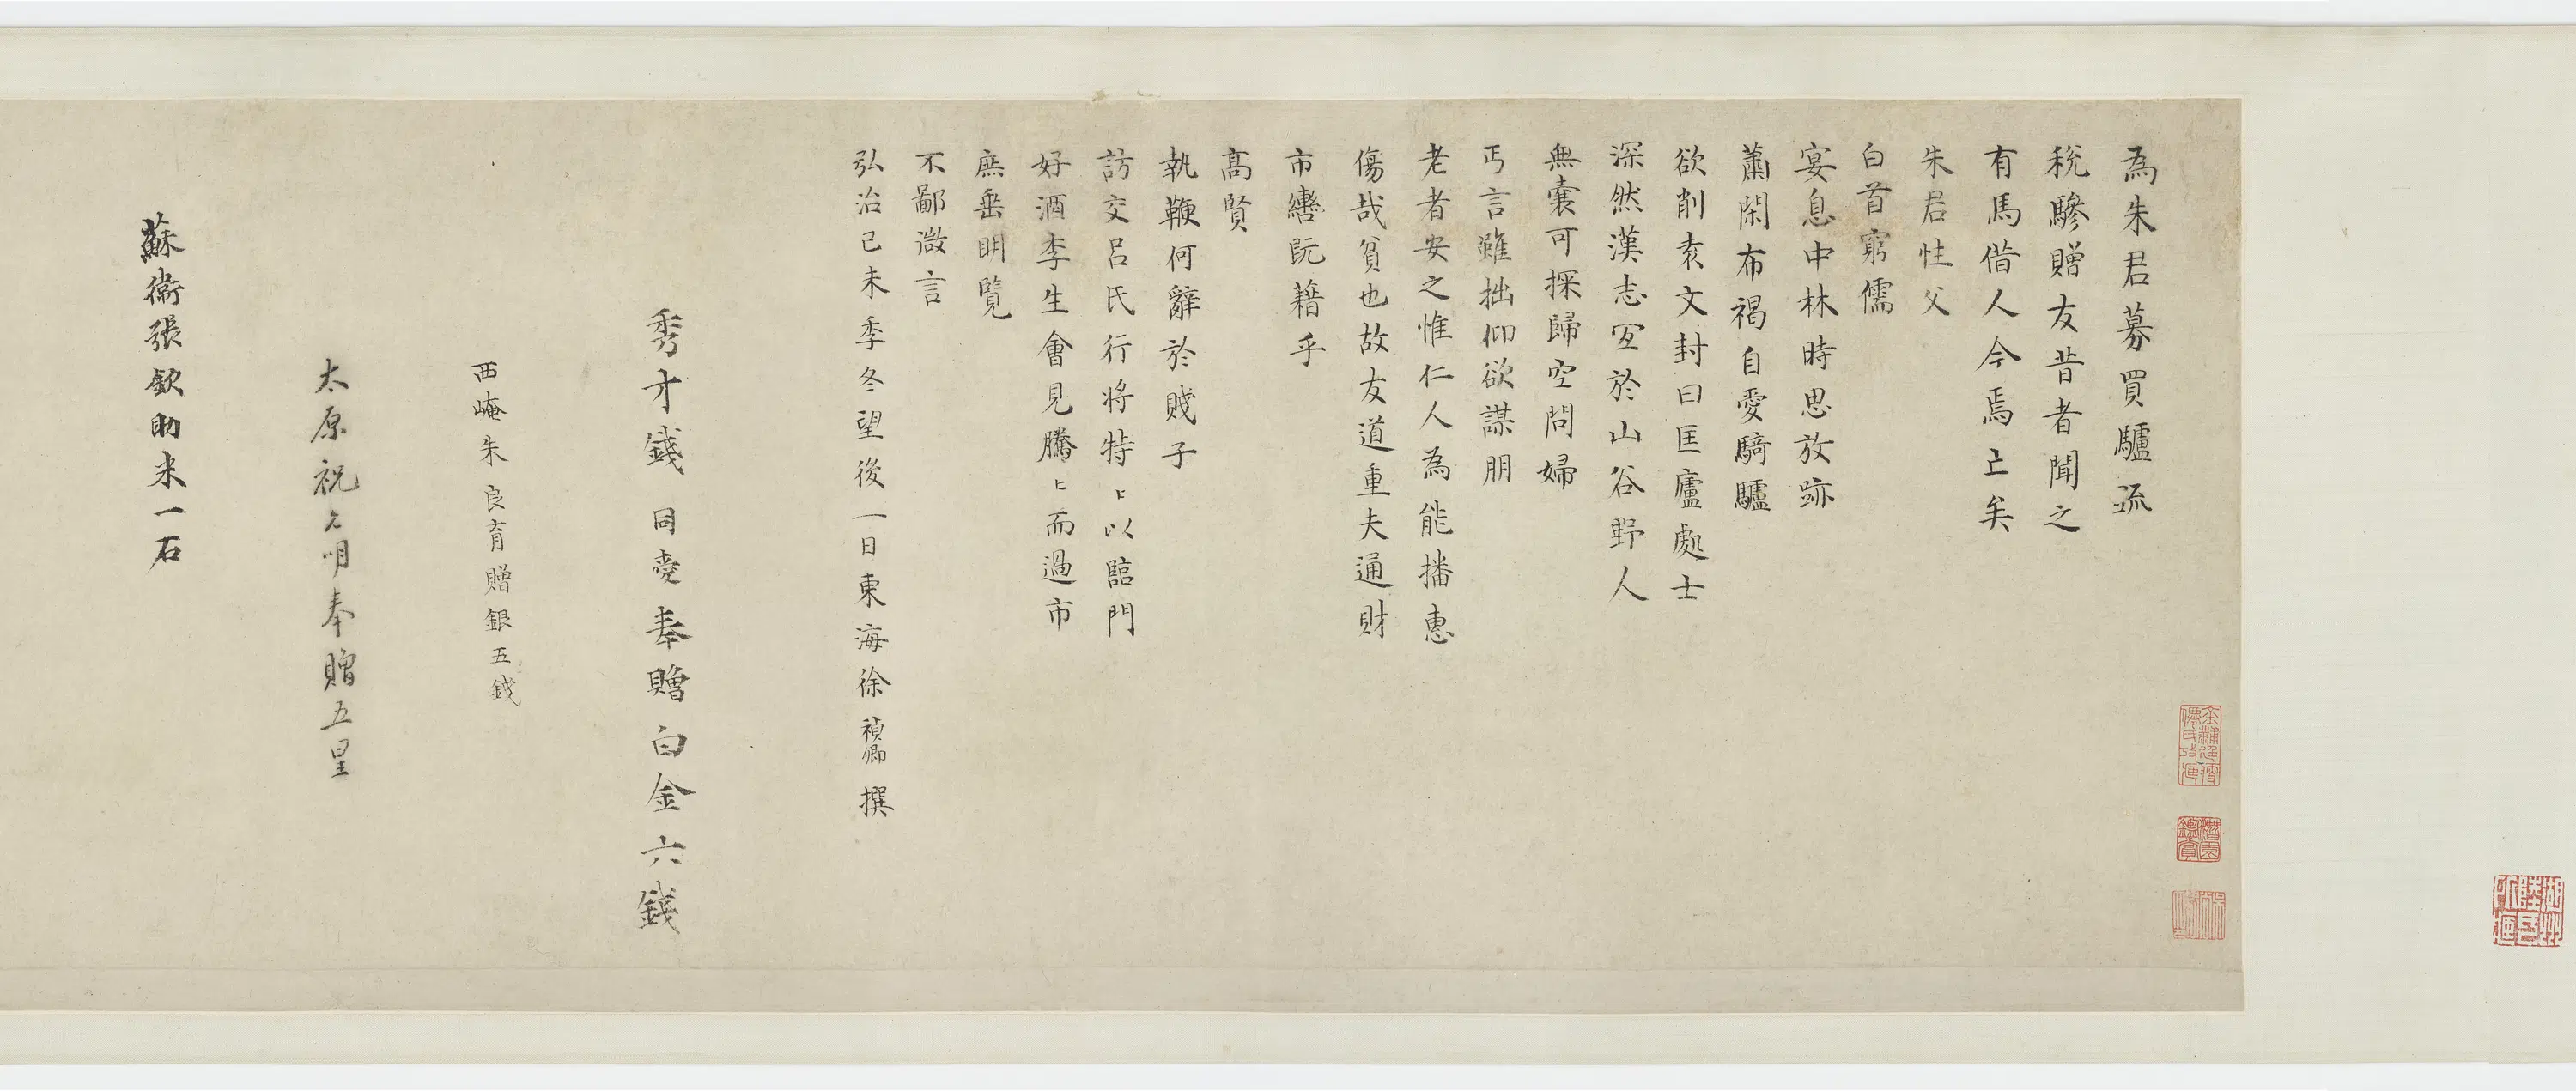 為朱君募買驢疏
稅驂贈友昔者聞之
有馬借人今焉亡矣
朱君性父
白首窮儒
宴息中林時思放跡
蕭閑布褐自愛騎驢
欲削袁文封曰匡廬處士
深然漢志宜於山谷野人
無囊可探歸空問婦
丐言雖拙仰欲謀朋
老者安之惟仁人為能播惠
傷哉貧也故友道重夫通財
市轡阮籍乎
高賢
執鞭何辭於賤子
訪交呂氏行將特〻以臨門
好酒李生會見騰〻而過市
庶垂明覽
不鄙微言
弘治己未季冬望後一日東海徐禎卿撰
秀才錢同愛奉贈白金六錢
西崦朱良育贈銀五錢
太原祝允明奉贈五星
蘇衛張欽助米一石
湖州陸氏所匜